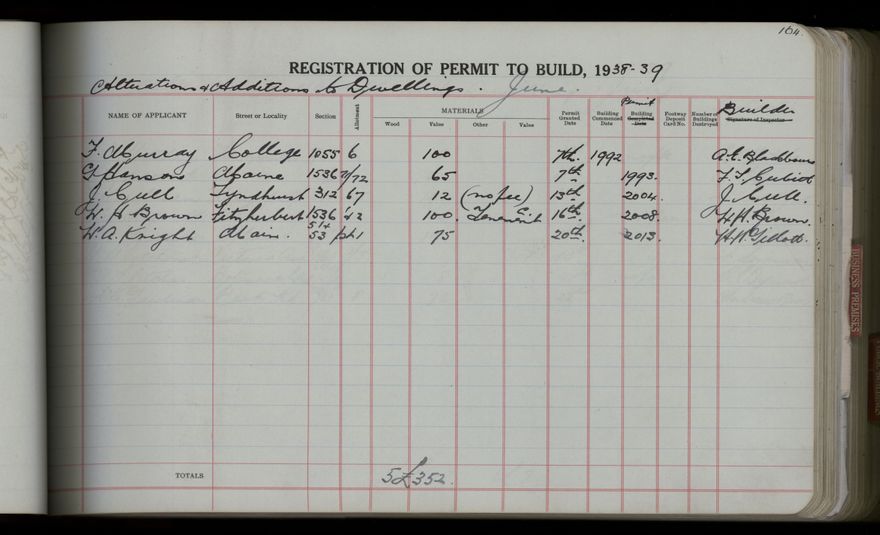 164.
REGISTRATION OF PERMIT TO BUILD, 1938-39
Alterations & Additions to Dwellings. June.
NAME OF APPLICANT Street or Locality Section Allotment MATERIALS Wood Value Other Value Permit Granted Date Building Commenced Date Permit Building Completed Date Footway Deposit Card No. Number of Buildings Destroyed Builder Signature of Inspector
F. Murray College 1055 6 100 7th. 1992
G Hansons Maine 1536 2/72 65 7th 1993.
J Cull Lyndhurst 312 67 12 (no fee) 13th 2004. J Cull.
W. H Brown Fitzherbert 1536 42 100. Tenement 16th 2008. W H. Brown.
W. A. Knight Main. 514 53 pt 1 75 20th. 2013.
TOTALS 5 £352.
BUSINESS PREMISES